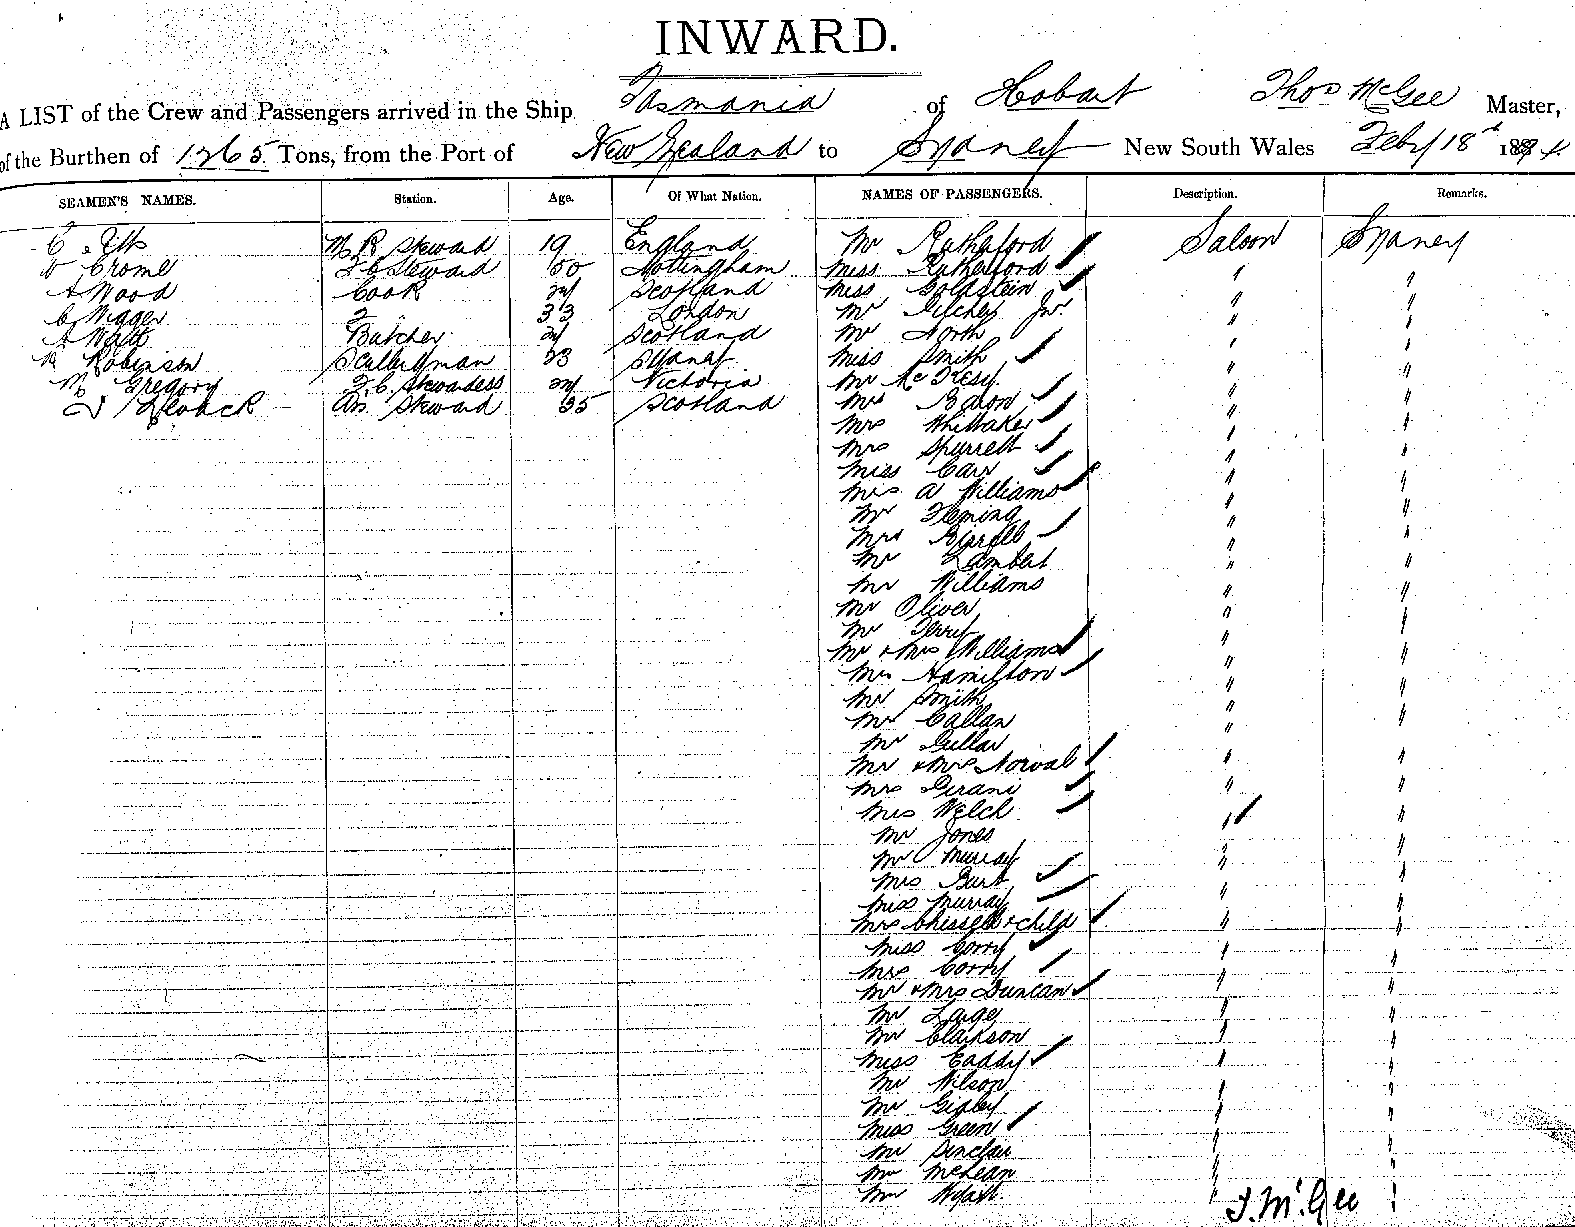 INWARD.
A LIST of the Crew and Passengers arrived in the Ship Tasmania of Hobart Thos McGee Master,
of the Burthen of 1265 Tons, from the Port of New Zealand to Sydney New South Wales Feby 18th 1894.
SEAMEN'S NAMES. Station. Age. Of What Nation. NAMES OF PASSENGERS. Description. Remarks.
C M R Steward 19 England Mr Rutherford Saloon Sydney
Crome F C Steward 50 Nottingham Miss Rutherford " "
A Wood Cook 24 Scotland Miss Goldstein "
C 2 " 33 London Mr Jnr. " "
A Watt Butcher 24 Scotland Mr North " "
R Robinson Sculleryman 23 Sydney Miss Smith " "
M Gregory F.C. Stewardess 24 Victoria Mr " "
As. Steward 35 Scotland Mrs " "
Mrs Whittaker " "
Mrs Spurrett " "
Miss Carr "
Mrs A Williams " "
Mr Fleming " "
Mrs " "
Mr Lambert "
Mr Williams " "
Mr Oliver "
Mr Terry " "
Mr & Mrs Williams "
Mrs Hamilton " "
Mr Smith " "
Mr Callan "
Mr "
Mr & Mrs Norval " "
Mrs " "
Mrs Welch " "
Mr Jones
Mr Murray " "
Mrs Burt "
Miss Murray " "
Mrs & child " "
Miss Corry "
Mrs Corry " "
Mr & Mrs Duncan " "
Mr Large " "
Mr Clarkson " "
Miss Eaddy " "
Mr Wilson " "
Mr " "
Miss Green " "
Mr Sinclair " "
Mr McLean " "
Mr " "
T. McGee